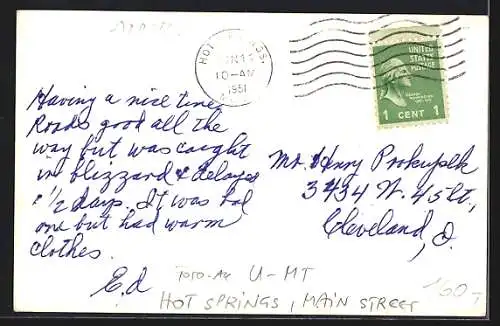 HOT
10-AM
1951
UNITED
STATES
POSTAGE
1 CENT 1
Having a nice time
Roads good all the
way but was caught
in blizzard & delayed
1 1/2 days. It was bad
one but had warm
clothes.
Ed
Mr. Henry Prokupek
3434 W. 45 St.,
Cleveland, O.
TOTO-AK U-MT
HOT SPRINGS, MAIN STREET
160